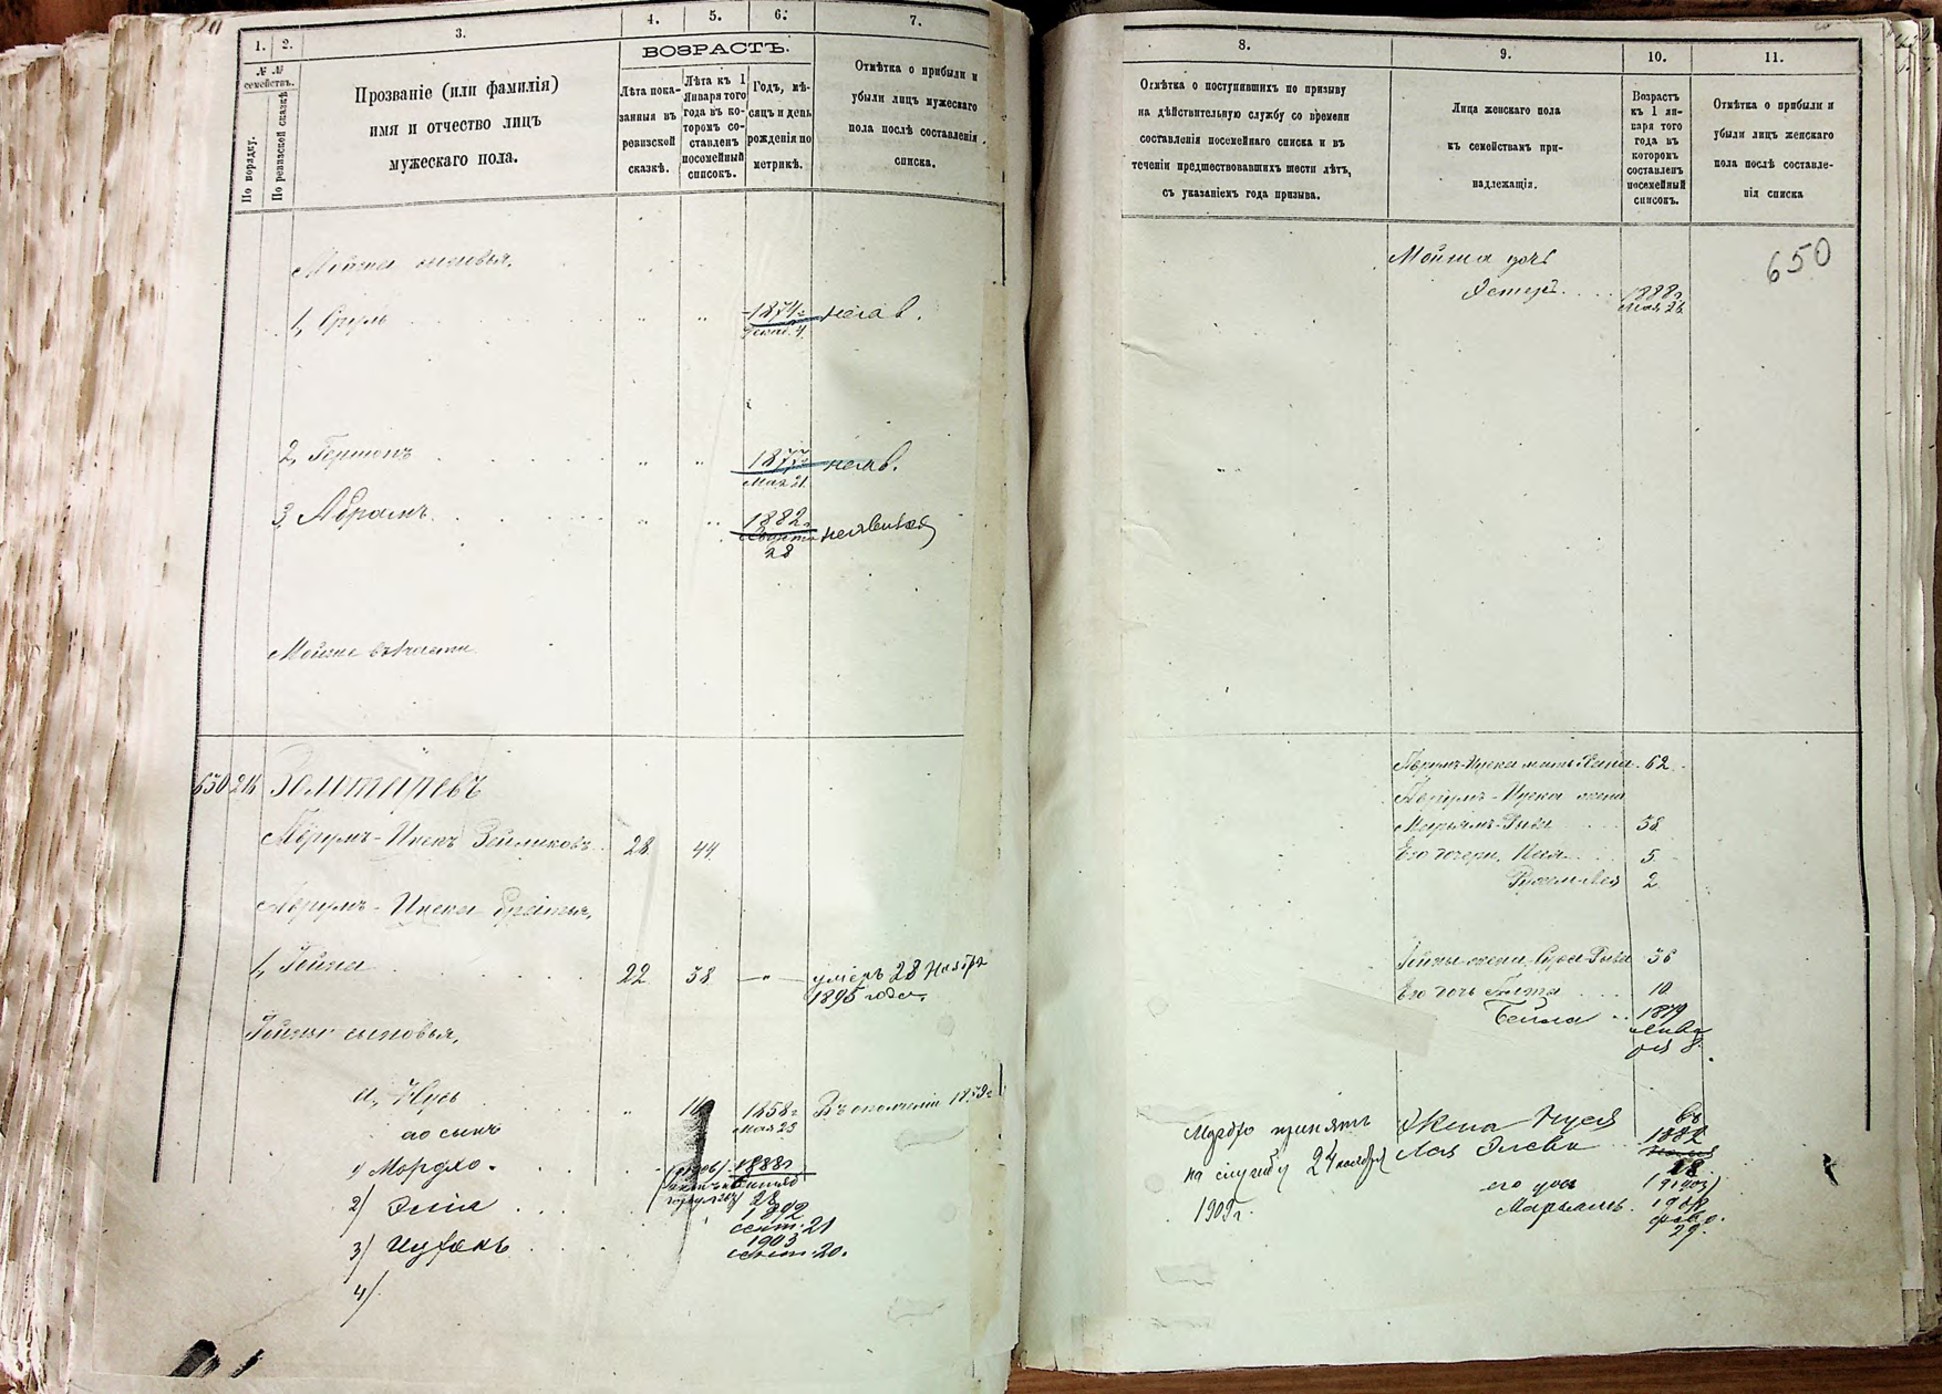 1.
2.
3.
4.
5.
6.
7.
№ №
семействъ.
По порядку.
По ревизской сказкѣ
Прозваніе (или фамилія)
имя и отчество лицъ
мужескаго пола.
ВОЗРАСТЪ.
Лѣта пока-
занныя въ
ревизской
сказкѣ.
Лѣта къ 1
Января того
года въ ко-
торомъ со-
ставленъ
посемейный
списокъ.
Годъ, мѣ-
сяцъ и день
рожденія по
метрикѣ.
Отмѣтка о прибыли и
убыли лицъ мужескаго
пола послѣ составленія
списка.
Мовши сыновья,
1, Сруль
1874 г
4
неяв.
2, Гершонъ
1877 г
Мая 21
неяв.
3, Абрамъ
1882 г
Марта
28
неявился
650 216 Золотаревъ
Аврумъ-Ицекъ Зейликовъ 28 44
Аврумъ-Ицека братья,
1, Гейна 22 38 умеръ 28 Ноября
1895 года.
Гейны сыновья,
а, Нусь 1858 г Въ ополченіи 18
Мая 23
его сынъ
1) Мордхо. 1888 г
28
2) Элія 1892
сент. 21
3) Ицхокъ 1903
сент. 20.
4)
8.
9.
10.
11.
Отмѣтка о поступившихъ по призыву
на дѣйствительную службу со времени
составленія посемейнаго списка и въ
теченіи предшествовавшихъ шести лѣтъ,
съ указаніемъ года призыва.
Лица женскаго пола
къ семействамъ при-
надлежащія.
Возрастъ
къ 1 ян-
варя того
года въ
которомъ
составленъ
посемейный
списокъ.
Отмѣтка о прибыли и
убыли лицъ женскаго
пола послѣ составле-
нія списка
650
Мойши дочь
Эстеръ 1888 г
Мая 26
Аврумъ-Ицека мать Хана 62
Аврумъ-Ицека жена
Марьямъ-Рыва 38
Его дочери, 5
2
Гейны жена Сура-Рыва 36
Его дочь 10
Бейла 1879
Янва
ря 8.
Мордхо принятъ
на службу 24 ноября
1909 г.
Жена Нуся
Лея Элева
1882
18
его дочь
Марьямъ.
29.